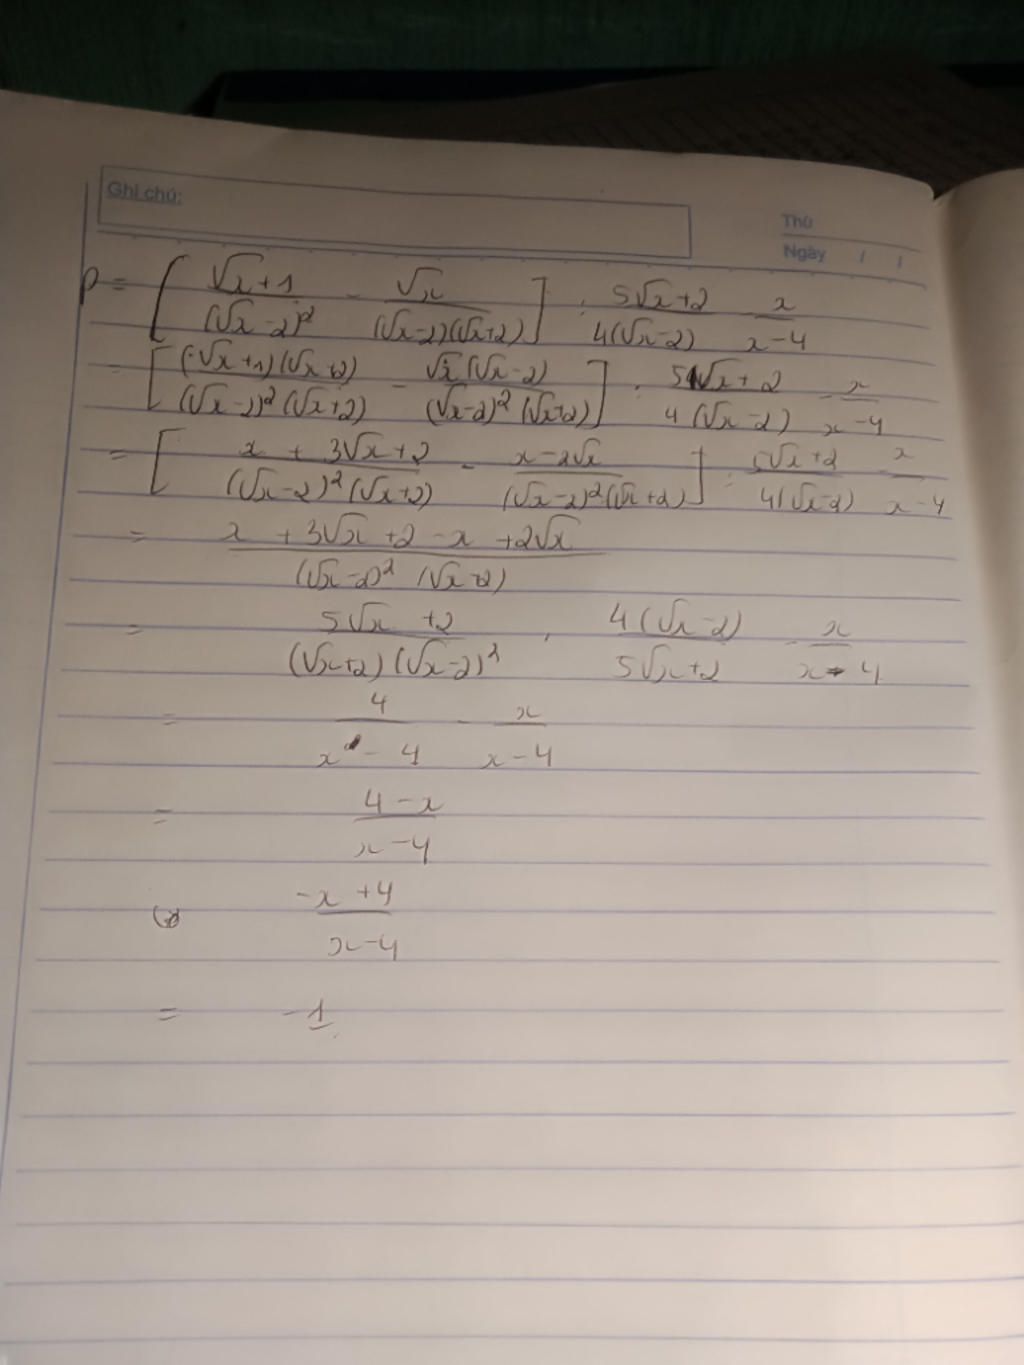 Ghi chú:
Thứ
Ngày / /
P = [ (√x+1)/(√x-2)² - √x/((√x-2)(√x+2)) ] : (5√x+2)/(4(√x-2)) - x/(x-4)
= [ (√x+1)(√x+2)/((√x-2)²(√x+2)) - √x(√x-2)/((√x-2)²(√x+2)) ] : (5√x+2)/(4(√x-2)) - x/(x-4)
= [ (x + 3√x+2)/((√x-2)²(√x+2)) - (x-2√x)/((√x-2)²(√x+2)) ] : (5√x+2)/(4(√x-2)) - x/(x-4)
= (x + 3√x +2 - x +2√x)/((√x-2)² (√x+2))
= (5√x +2)/((√x+2)(√x-2)²) . 4(√x-2)/(5√x+2) - x/(x-4)
= 4/(x - 4) - x/(x-4)
= (4-x)/(x-4)
(-x+4)/(x-4)
= -1